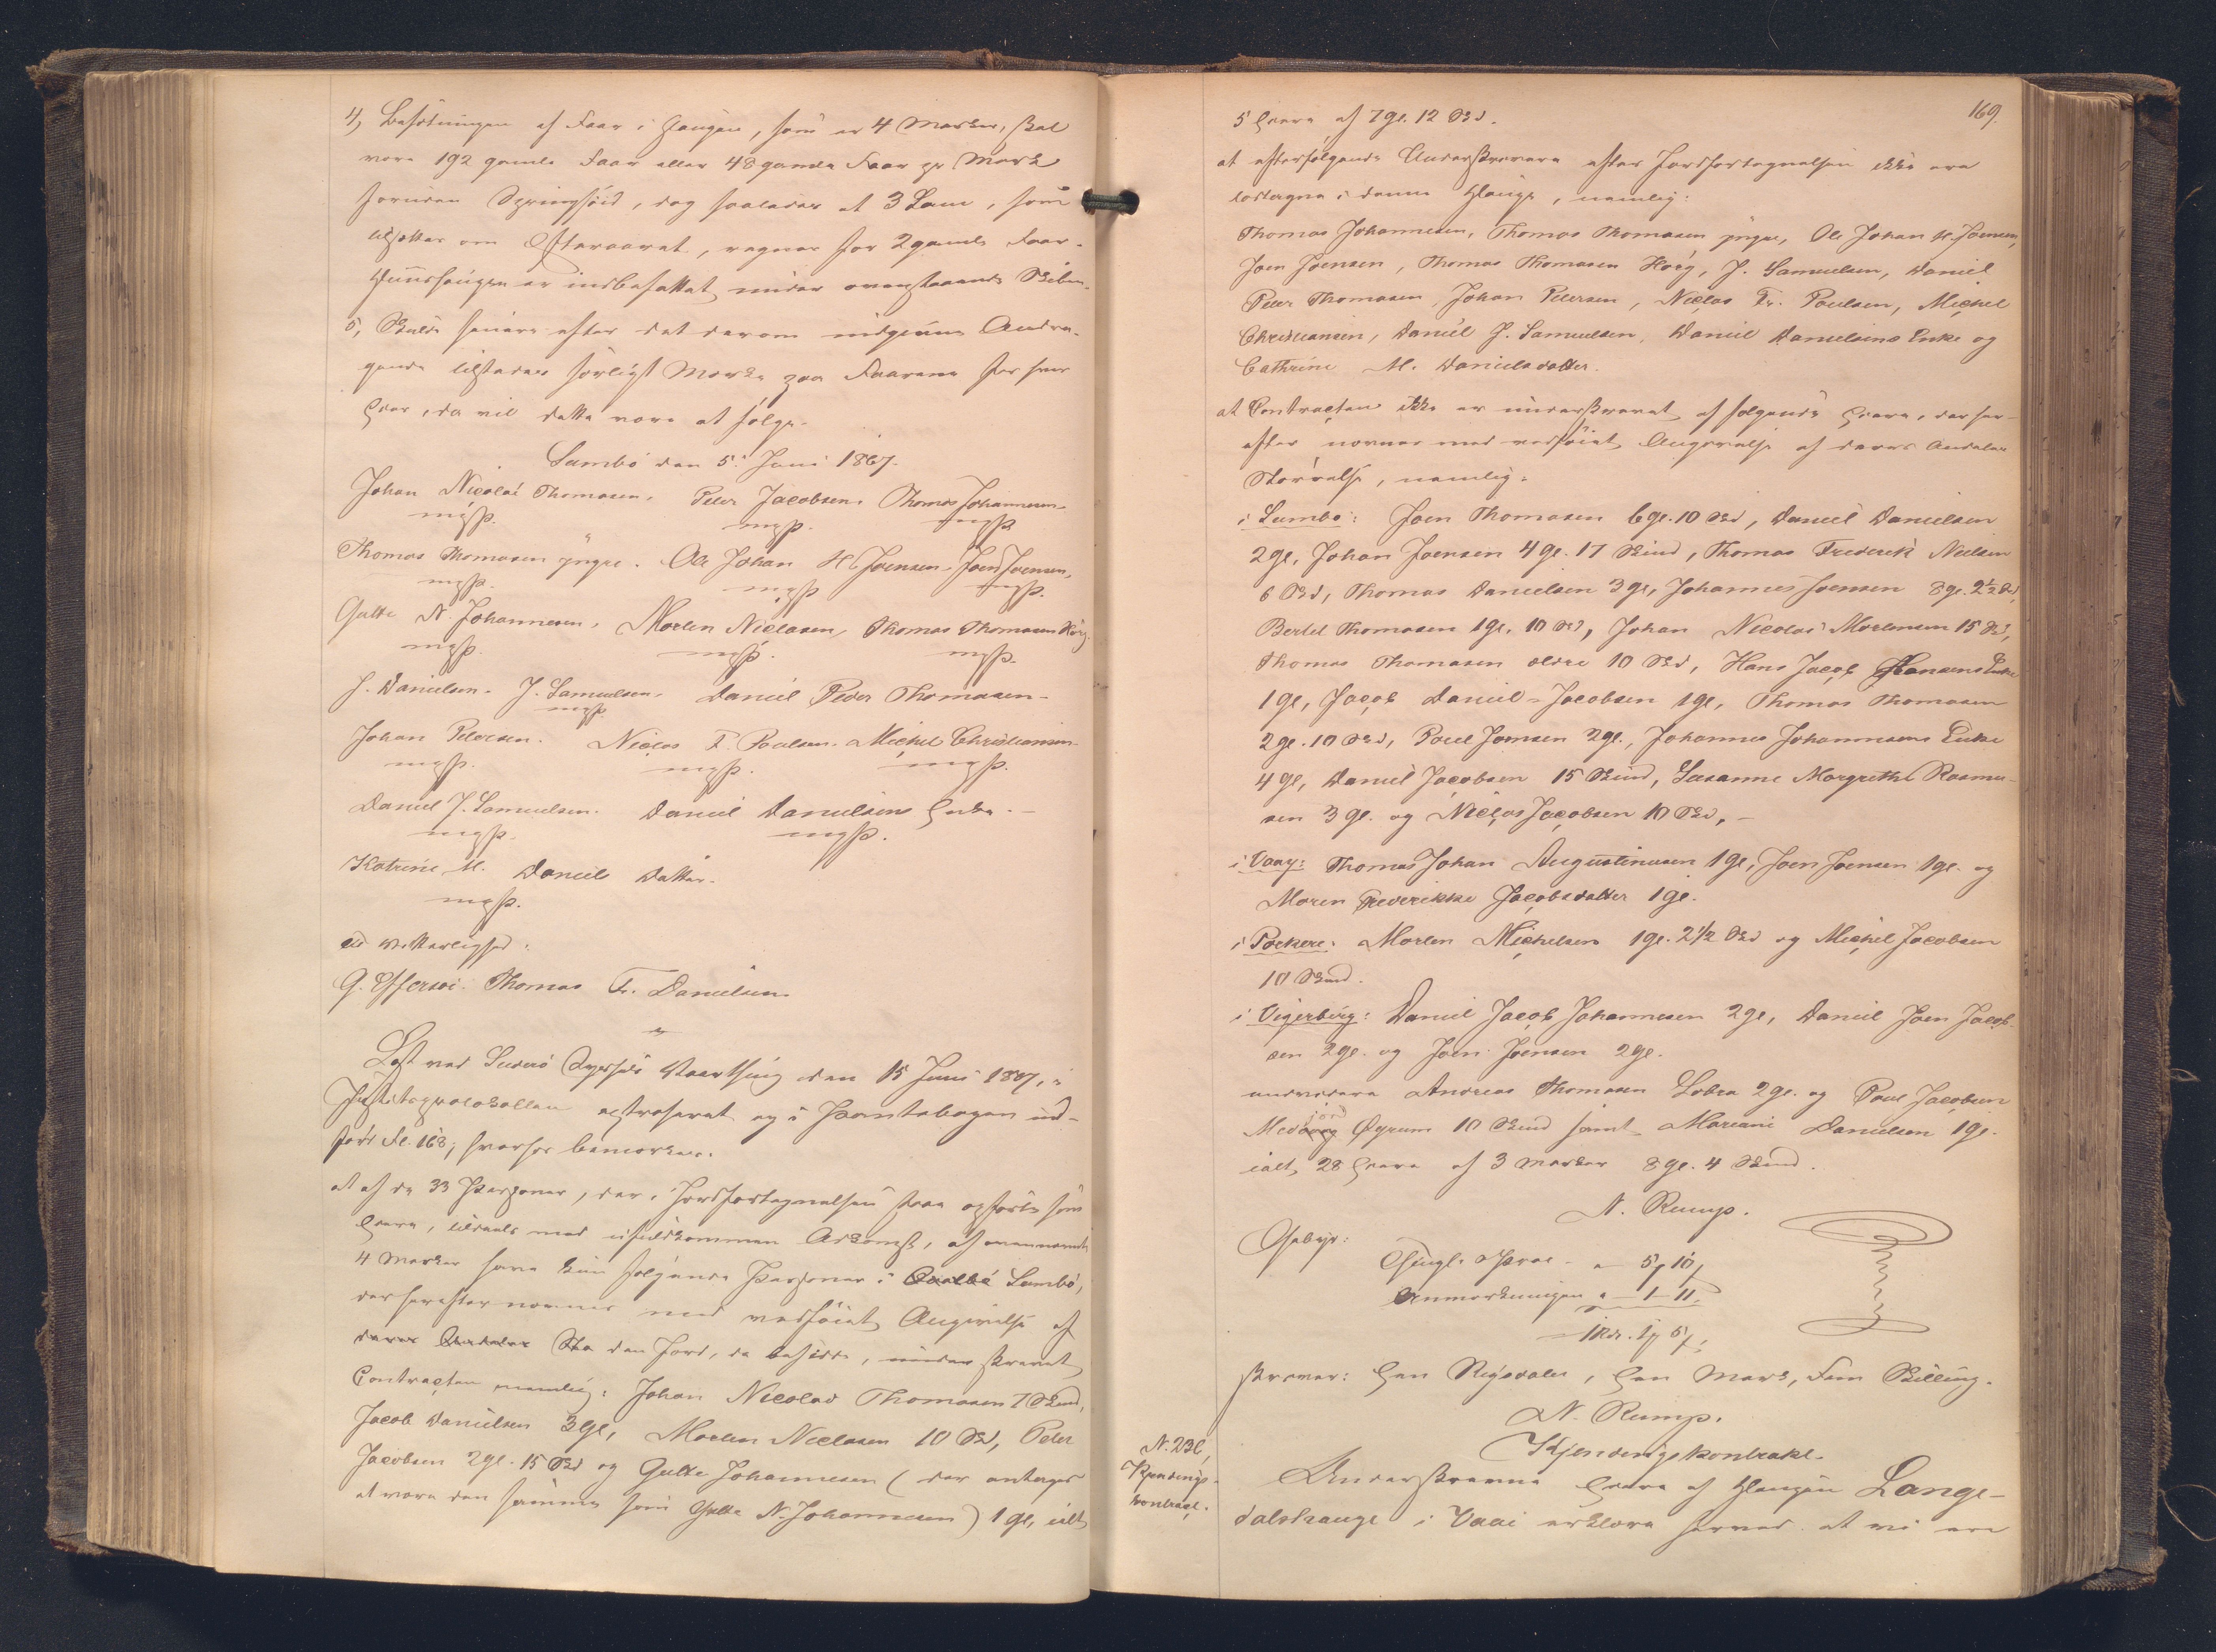 4, Besætningen af Faar i Haugen, som er 4 Marker, skal
være 192 gamle Faar eller 48 gamle Faar pr Mark
foruden Springføid, dog saaledes at 3 Lam, som
udsættes om Efteraaret, regnes for 2 gamle Faar.
er indbefattet under ovenstaaende
5, Skulde senere efter det derom indgivne Andra-
gende tilstaaes særligt Mærke paa Faarene for hver
Eier, da vil dette være at følge.
Sumbø den 5. Juni 1867.
Johan Nicolai Thomasen. Peter Jacobsen. Thomas Johannesen
mgP. mgP. mgP.
Thomas Thomasen yngre. Ole Johan H. Joensen. Joen Joensen,
mgP. mgP. mgP.
Gutte N. Johannesen, Morten Niclasen, Thomas Thomasen Horg
mgP. mgP. mgP.
J. Danielsen. J. Samuelsen. Daniel Peder Thomasen.
mgP.
Johan Petersen. Niclas F. Poulsen. Michel Christiansen
mgP. mgP. mgP.
Daniel J. Samuelsen. Daniel Danielsens Enke.
mgP. mgP.
Katrine M. Daniels Datter.
mgP.
til Vitterlighed:
G. Effersøe. Thomas Fr. Danielsen
Læst ved Suderø Syssels Vaarthing den 15 Juni 1867, i
Justitsprotokollen extraheret og i Pantebogen ind-
ført Fl. 168; hvorfor bemærkes:
at af de 33 Personer, der i Jordfortegnelsen staae opførte som
Eiere, tildeels med ufuldkommen Adkomst, af ovennævnte
4 Marker have kun følgende Personer i Qvalbø Sumbø,
der herefter nævnes med vedføiet Angivelse af
deres Andeles Stø den Jord, de besidde, underskrevet
Contracten nemlig: Johan Nicolai Thomasen 7 Skind,
Jacob Danielsen 3 gl, Morten Niclasen 10 Skd, Peter
Jacobsen 2 gl. 15 Skd og Gutte Johannesen (der antages
at være den samme som Gutte N. Johannesen) 1 gl, ialt
169.
5 Eiere af 7 gl. 12 Skd.
at efterfølgende Underskrevne efter Jordfortegnelsen ikke ere
lodtagne i denne Hauge, nemlig:
Thomas Johannesen, Thomas Thomasen yngre, Ole Johan H. Joensen,
Joen Joensen, Thomas Thomasen Horg, J. Samuelsen, Daniel
Peter Thomasen, Johan Petersen, Niclas Fr. Poulsen, Michel
Christiansen, Daniel J. Samuelsen, Daniel Danielsens Enke og
Cathrine M. Danielsdatter.
at Contracten ikke er underskrevet af følgende Eiere, der her-
efter nævnes med vedføiet Angivelse af deres Andeles
Størrelse, nemlig:
i Sumbø: Joen Thomasen 6 gl. 10 Skd, Daniel Danielsen
2 gl, Johan Joensen 4 gl. 17 Skind, Thomas Frederik Nielsen
6 Skd, Thomas Danielsen 3 gl, Johannes Joensen 8 gl. 2½ Skd,
Bertel Thomasen 1 gl. 10 Skd, Johan Nicolai Mortensen 15 Skd,
Thomas Thomasen ældre 10 Skd, Hans Jacob Hansens Enke
1 gl, Jacob Daniel Jacobsen 1 gl, Thomas Thomasen
2 gl. 10 Skd, Poul Joensen 2 gl., Johannes Johannesens Enke
4 gl, Daniel Jacobsen 15 Skind, Susanne Margrethe Rasmu-
sen 3 gl. og Niclas Jacobsen 10 Skd, –
i Vaag: Thomas Johan Augustinusen 1 gl, Joen Joensen 1 gl. og
Maren Frederikke Jacobsdatter 1 gl.
i Porkere: Morten Michelsen 1 gl. 2½ Skd og Michel Jacobsen
10 Skind.
i Vigerbirg: Daniel Jacob Johannesen 2 gl, Daniel Joen Jacob-
sen 2 gl. og Joen Joensen 2 gl.
endvidere Andreas Thomasen Lobra 2 gl. og Poul Jacobsen
jord
10 Skind samt Mariane Danielsen 1 gl.
ialt 28 Eiere af 3 Marker 8 gl. 4 Skind.
N. Rump.
Gebyr:
Thingl. & Prot. – 5 10
Anmærkningen – 1 – 11
1 Rdr. 1 5
skriver: Een Rigsdaler, Een Mark, Fem Skilling.
N. Rump.
Kjendingskontrakt.
N. 232
Kjendings-
kontract.
Underskrevne Eiere af Haugen Lange-
dalshauge i Vaai erklære herved at vi ere